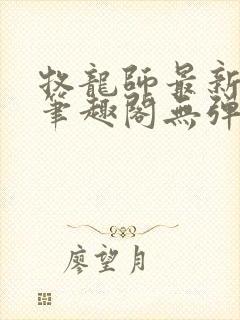 牧龍師最新
筆趣閣無彈
廖望月